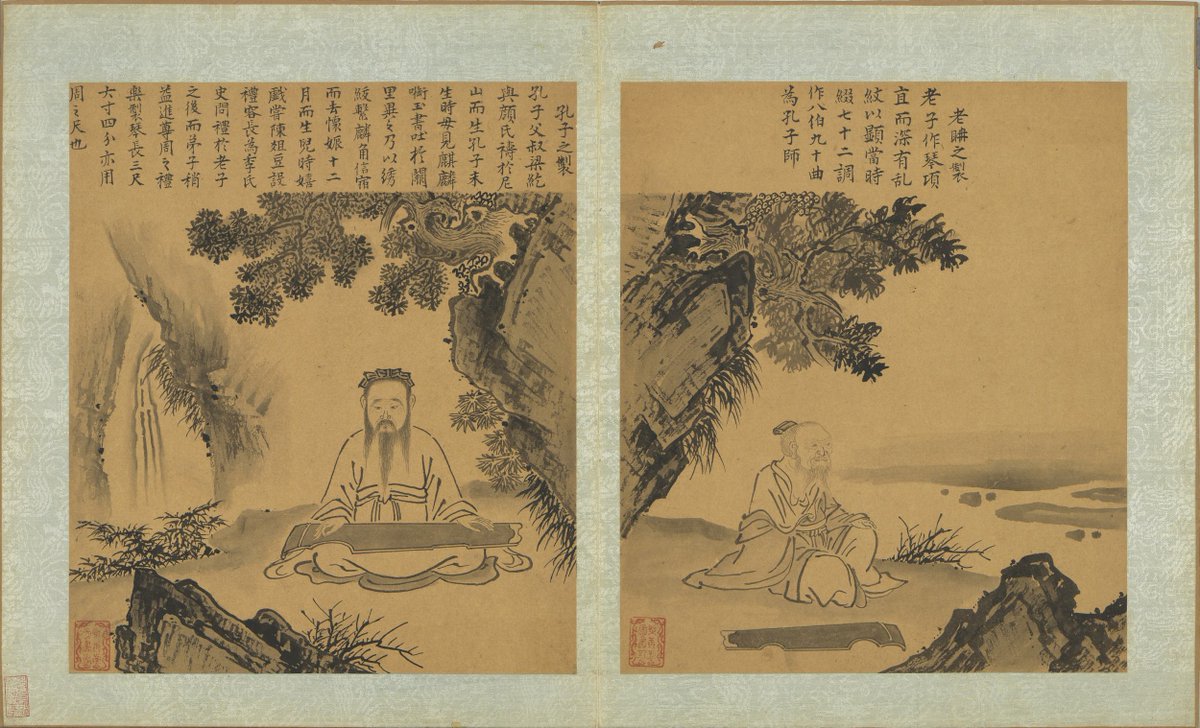 老聃之製
老子作琴項
宜而深有乱
紋以顯當時
綴七十二調
作八伯九十曲
為孔子師
孔子之製
孔子父叔梁紇
與顏氏禱於尼
山而生孔子未
生時母見麒麟
啣玉書吐於闕
里異之乃以绣
紱繫麟角信宿
而去懷娠十二
月而生兒時嬉
戲嘗陳俎豆設
禮容長為季氏
史問禮於老子
之後而弟子稍
益進尊周之禮
樂製琴長三尺
六寸四分亦用
周之尺也